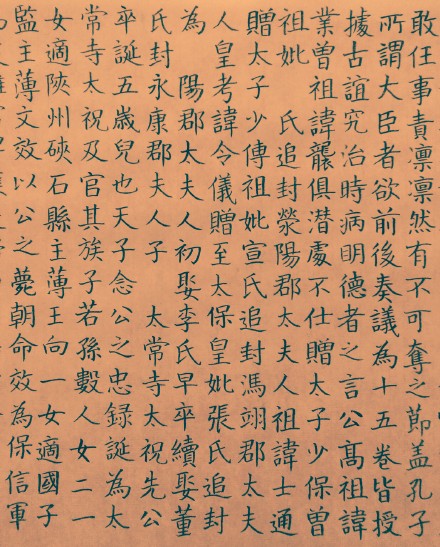 敢任事責凛凛然有不可奪之節盖孔子
所謂大臣者欲前後奏議為十五卷皆授
據古誼究治時病明德者之言公髙祖諱
業曽祖諱龔俱潜處不仕贈太子少保曽
祖妣 氏追封滎陽郡太夫人祖諱士通
贈太子少傅祖妣宣氏追封馮翊郡太夫
人皇考諱令儀贈至太保皇妣張氏追封
為 陽郡太夫人初娶李氏早卒續娶董
氏封永康郡夫人子 太常寺太祝先公
卒誕五歳兒也天子念公之忠録誕為太
常寺太祝及官其族子若孫數人女二一
女適陝州硤石縣主薄王向一女適國子
監主薄文效以公之薨朝命效為保信軍